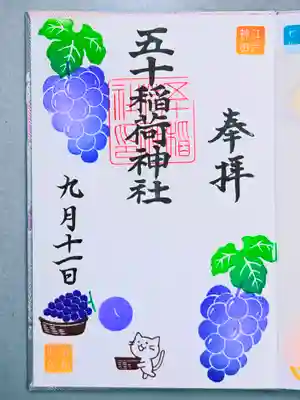 奉拝
五十稲荷神社
九月十一日